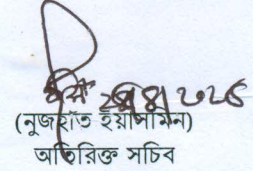 (নুজহাত ইয়াসমিন)
অতিরিক্ত সচিব